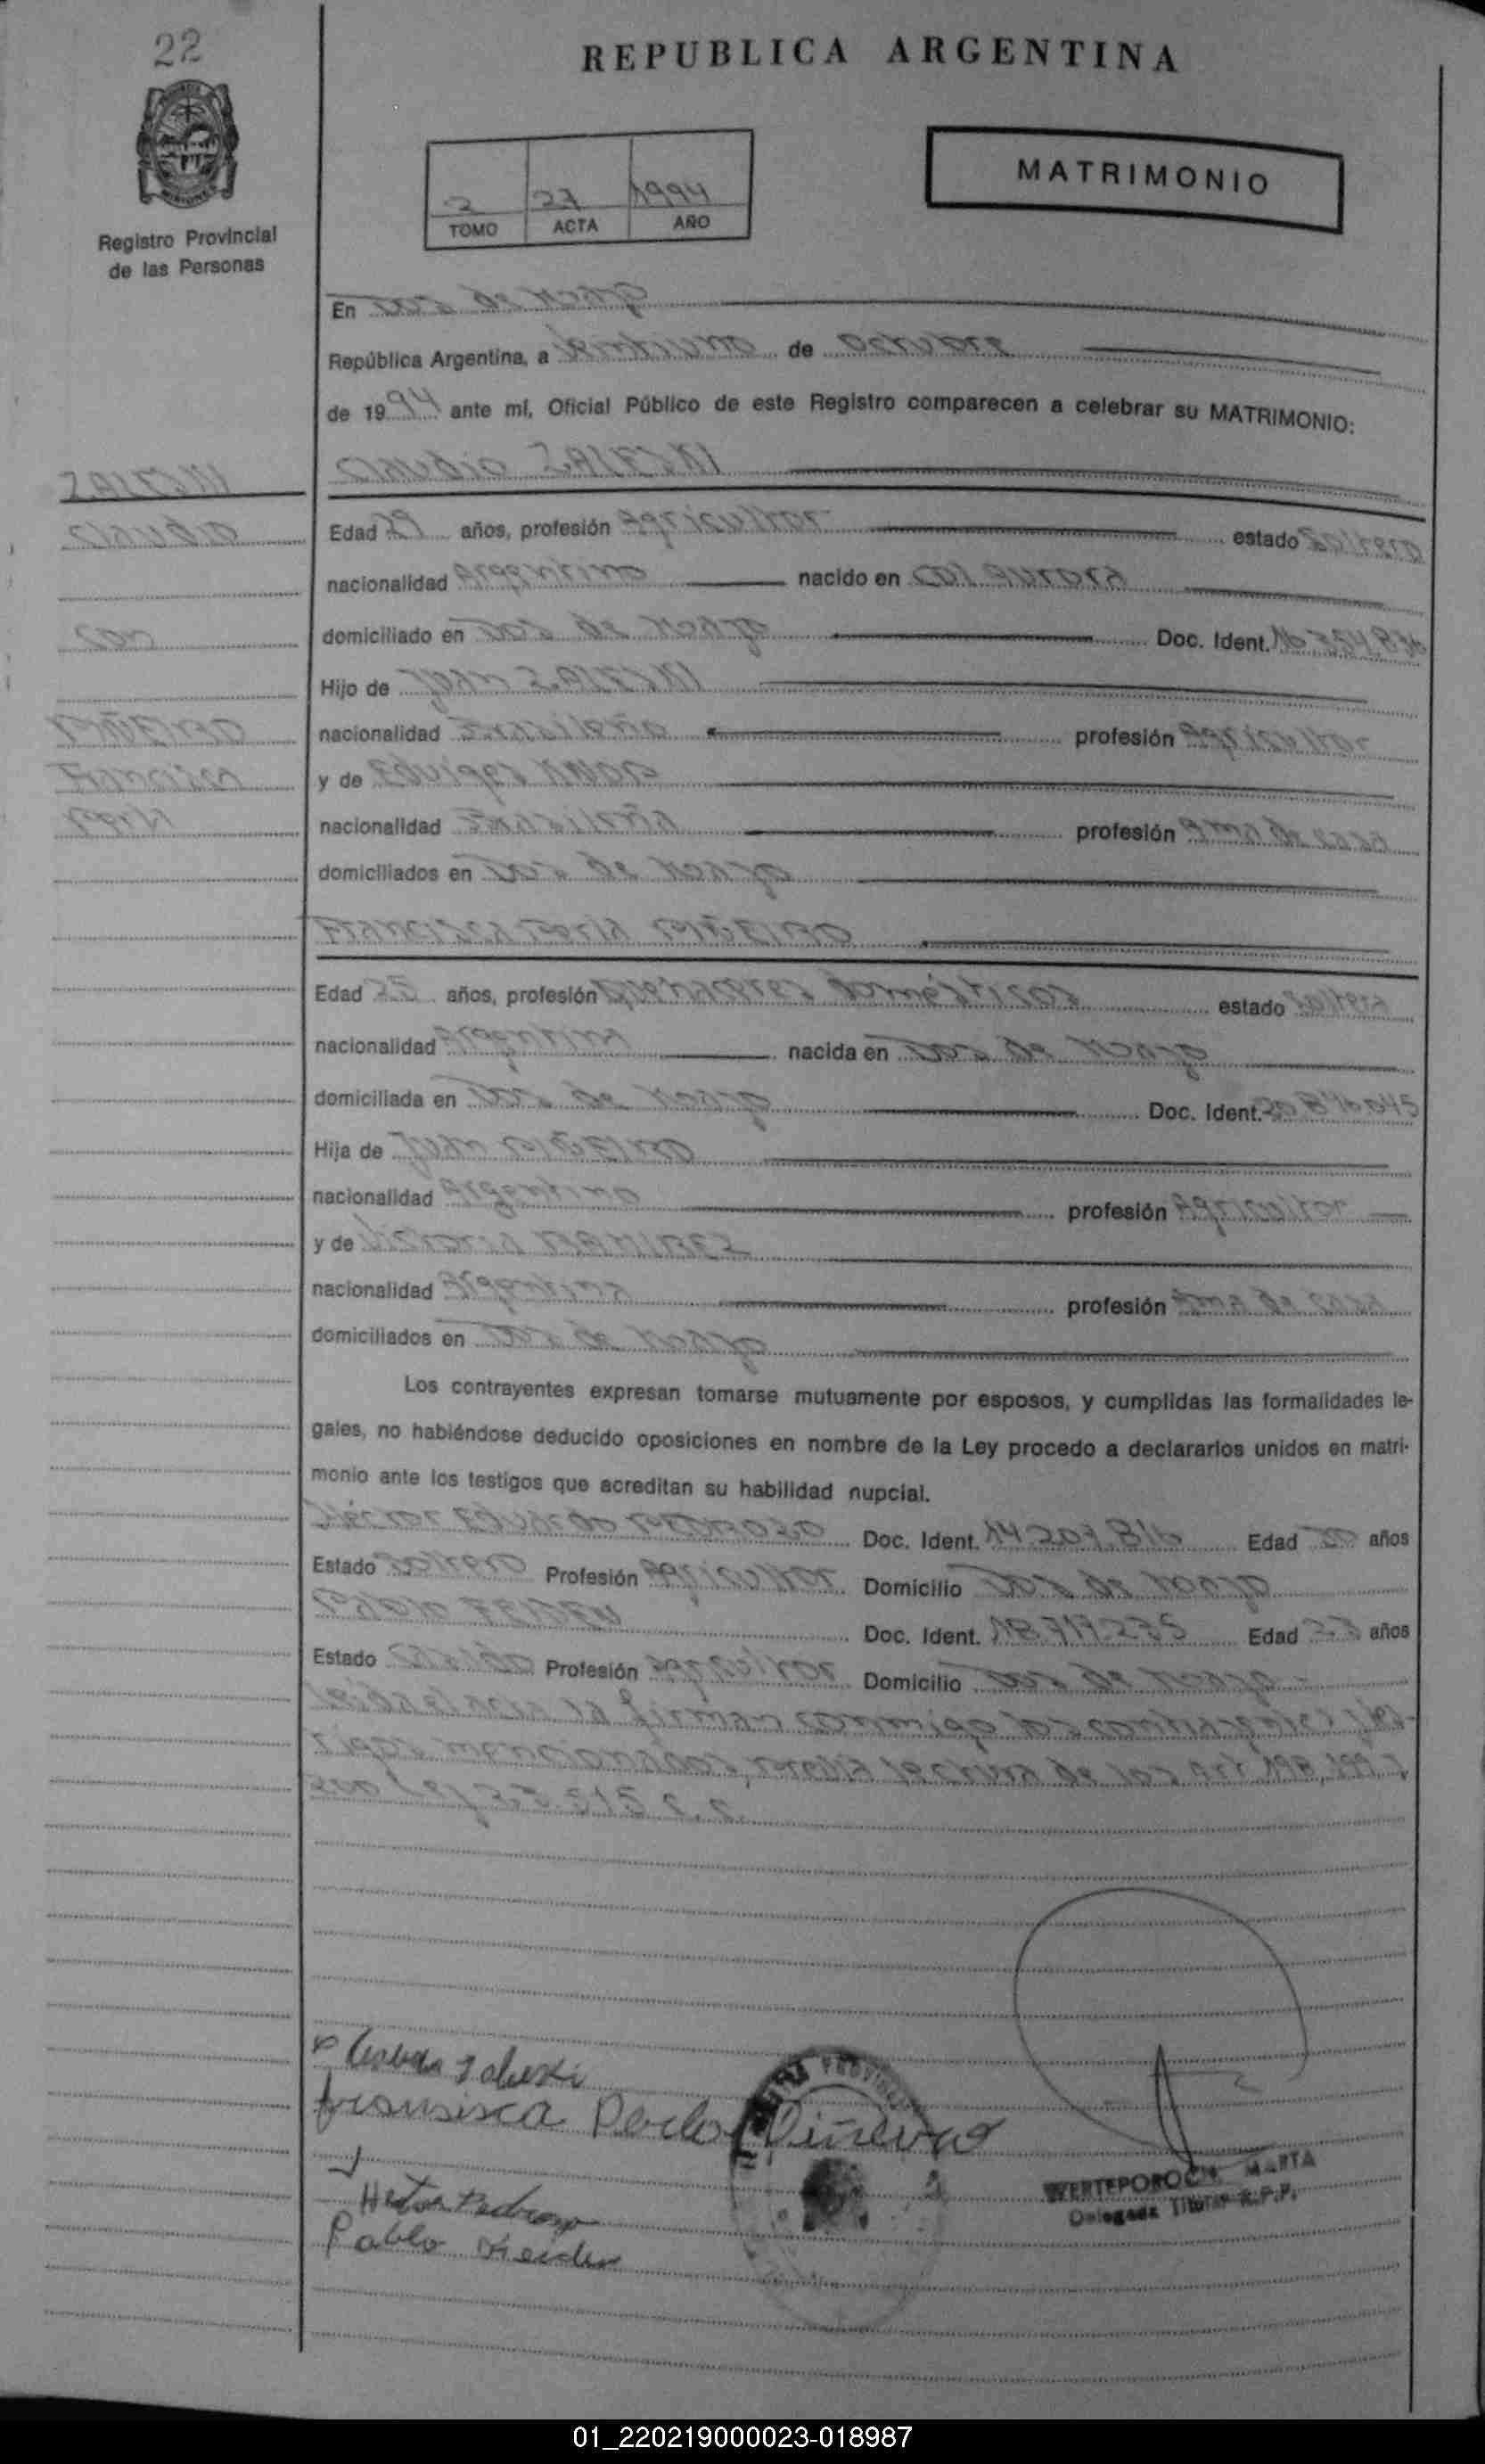 22
REPUBLICA ARGENTINA
MATRIMONIO
2 27 1994
TOMO ACTA AÑO
Registro Provincial
de las Personas
En Dos de Mayo
República Argentina, a veintiuno de octubre
de 1994 ante mí, Oficial Público de este Registro comparecen a celebrar su MATRIMONIO:
Claudio ZALESKI
ZALESKI
Claudio
Edad 29 años, profesión Agricultor estado Soltero
nacionalidad Argentino nacido en Col. Aurora
con
domiciliado en Dos de Mayo Doc. Ident.
Hijo de Juan ZALESKI
PIÑEIRO
nacionalidad Brasileño profesión Agricultor
Francisca
y de Eduviges
nacionalidad Brasileña profesión Ama de casa
domiciliados en Dos de Mayo
Francisca PIÑEIRO
Edad 25 años, profesión Quehaceres domésticos estado Soltera
nacionalidad Argentina nacida en Dos de Mayo
domiciliada en Dos de Mayo Doc. Ident. 20.846.045
Hija de Juan PIÑEIRO
nacionalidad Argentino profesión Agricultor
y de Victoria RAMIREZ
nacionalidad Argentina profesión Ama de casa
domiciliados en Dos de Mayo
Los contrayentes expresan tomarse mutuamente por esposos, y cumplidas las formalidades le-
gales, no habiéndose deducido oposiciones en nombre de la Ley procedo a declararlos unidos en matri-
monio ante los testigos que acreditan su habilidad nupcial.
Héctor Eduardo PEDROZO Doc. Ident. 14.207.816 Edad 30 años
Estado Soltero Profesión Agricultor Domicilio Dos de Mayo
Pablo Doc. Ident. 18.717.235 Edad años
Estado Profesión Agricultor Domicilio Dos de Mayo
Leída el acta la firman conmigo los contrayentes y tes-
tigos mencionados, previa lectura de los art. 198, 199 y
200 Ley 23.515 C.C.
Piñeiro
Hector Pedrozo
Pablo
WERTEPOROCH, MARTA
Delegada Titular R.P.P.
01_220219000023-018987